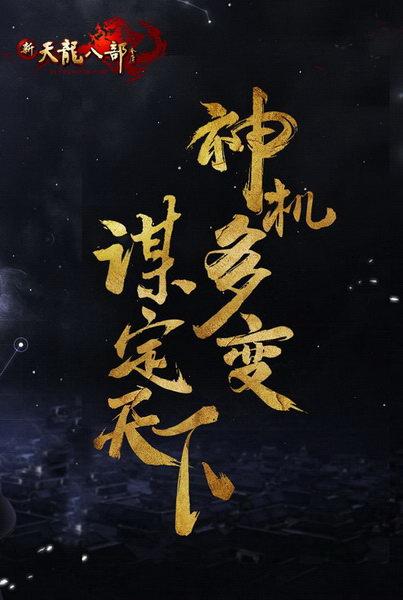 新天龍八部
神机多变
谋定天下